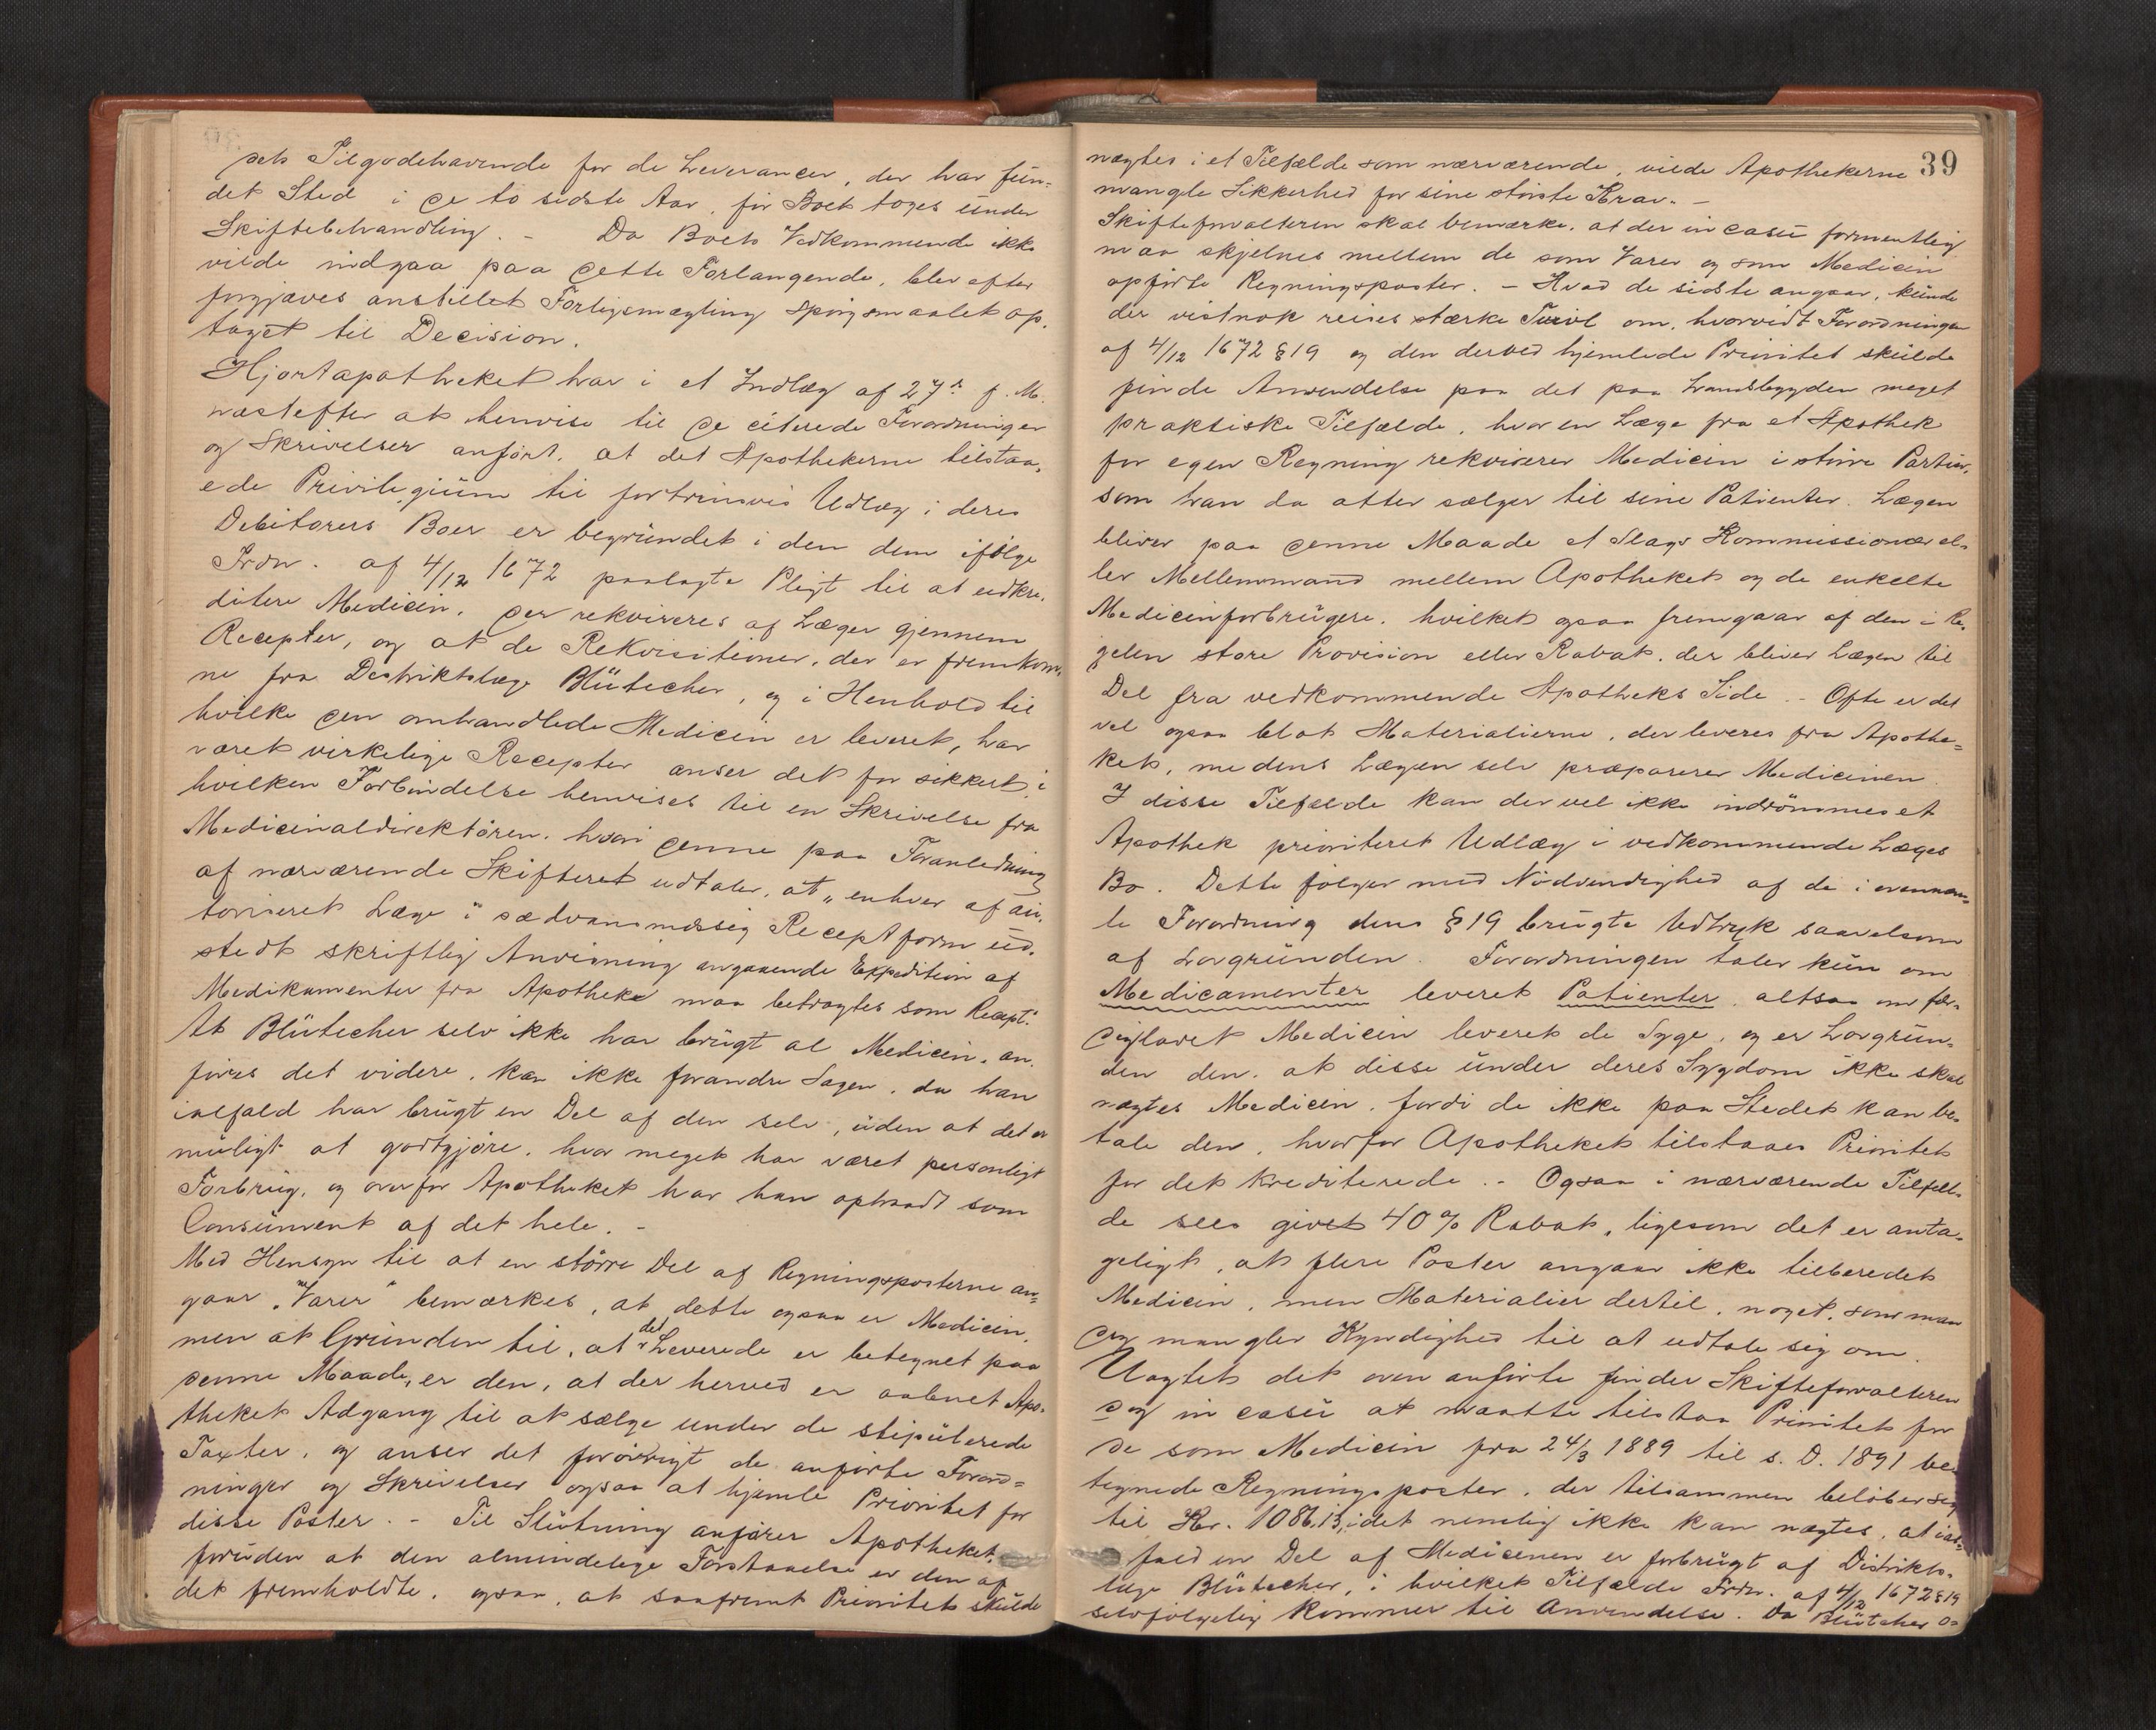 sets Tilgodehavende for de Leverancer, der har fun-
det Sted i de to sidste Aar, før Boet toges under
Skiftebehandling. - Da Boets Vedkommende ikke
vilde indgaa paa dette Forlangende, blev efter
forgjæves anstillet Forligsmægling Spørgsmaalet op-
taget til Decision.
Hjortapotheket har i et Indlæg af 27de f. M.
næstefter at henvise til de citerede Forordninger
og Skrivelser anført, at det Apothekerne tilstaa-
ede Privilegium til fortrinsvis Udlæg i deres
Debitorers Boer er begrundet i den dem ifølge
Frdn. af 4/12 1672 paalagte Pligt til at udkre-
ditere Medicin, der rekvireres af Læger gjennem
Recepter, og at de Rekvisitioner, der er fremkom-
ne fra Distriktslæge Blütecher, og i Henhold til
hvilke den omhandlede Medicin er leveret, har
været virkelige Recepter anser det for sikkert, i
hvilken Forbindelse henvises til en Skrivelse fra
Medicinaldirektøren, hvori denne paa Foranledning
af nærværende Skifteret udtaler, at "enhver af au-
toriseret Læge i sædvansmæssig Receptform ud-
stedt skriftlig Anvisning angaaende Expedition af
Medikamenter fra Apotheke maa betragtes som Recept."
At Blütecher selv ikke har brugt al Medicin, an-
føres det videre, kan ikke forandre Sagen, da han
ialfald har brugt en Del af den selv, uden at det er
muligt at godtgjøre, hvor meget har været personligt
Forbrug, og overfor Apotheket har han optraadt som
Consument af det hele. -
Med Hensyn til at en større Del af Regningsposterne an-
gaar "Varer" bemærkes, at dette ogsaa er Medicin,
men at Grunden til, at det Leverede er betegnet paa
denne Maade, er den, at der herved er aabnet Apo-
theket Adgang til at sælge under de stipulerede
Taxter, og anser det forøvrigt de anførte Forord-
ninger og Skrivelser ogsaa at hjemle Prioritet for
disse Poster. - Til Slutning anfører Apotheket,
foruden at den almindelige Forstaaelse er den af
det fremholdte, ogsaa, at saafremt Prioritet skulde
39
nægtes i et Tilfælde som nærværende, vilde Apothekerne
mangle Sikkerhed for sine største Krav. -
Skifteforvalteren skal bemærke, at der in casu formentlig
maa skjelnes mellem de som Varer og som Medicin
opførte Regningsposter. - Hvad de sidste angaar, kunde
der vistnok reises stærke Tvivl om, hvorvidt Forordningen
af 4/12 1672 § 19 og den derved hjemlede Prioritet skulde
finde Anvendelse paa det paa Landsbygden meget
praktiske Tilfælde, hvor en Læge fra et Apothek
for egen Regning rekvirerer Medicin i større Partier,
som han da atter sælger til sine Patienter. Lægen
bliver paa denne Maade et Slags Kommissionær el-
ler Mellemmand mellem Apotheket og de enkelte
Medicinforbrugere, hvilket ogsaa fremgaar af den i Re-
gelen store Provision eller Rabat, der bliver Lægen til
Del fra vedkommende Apotheks Side. - Ofte er det
vel ogsaa blot Materialierne, der leveres fra Apothe-
ket, medens Lægen selv præparerer Medicinen.
I disse Tilfælde kan der vel ikke indrømmes et
Apothek prioriteret Udlæg i vedkommende Læges
Bo. Dette følger med Nødvendighed af de i ovennævn-
te Forordning dens § 19 brugte Udtryk saavelsom
af Lovgrunden. Forordningen taler kun om
Medicamenter leveret Patienter, altsaa om fær-
diglavet Medicin leveret de Syge, og er Lovgrun-
den den, at disse under deres Sygdom ikke skal
nægtes Medicin, fordi de ikke paa Stedet kan be-
tale den, hvorfor Apotheket tilstaaes Prioritet
for det krediterede. - Ogsaa i nærværende Tilfæl-
de sees givet 40 % Rabat, ligesom det er anta-
geligt, at flere Poster angaar ikke tilberedet
Medicin, men Materialier dertil, noget, som man
dog mangler Kyndighed til at udtale sig om.
Uagtet det oven anførte finder Skifteforvalteren
dog in casu at maatte tilstaa Prioritet for
de som Medicin fra 24/3 1889 til s. D. 1891 be-
tegnede Regningsposter, der tilsammen beløber sig
til Kr. 1086,13, idet nemlig ikke kan nægtes, at ial-
fald en Del af Medicinen er forbrugt af Distrikts-
læge Blütecher, i hvilket Tilfælde Frdn. af 4/12 1672 § 19
selvfølgelig kommer til Anvendelse. Da Blütecher o-